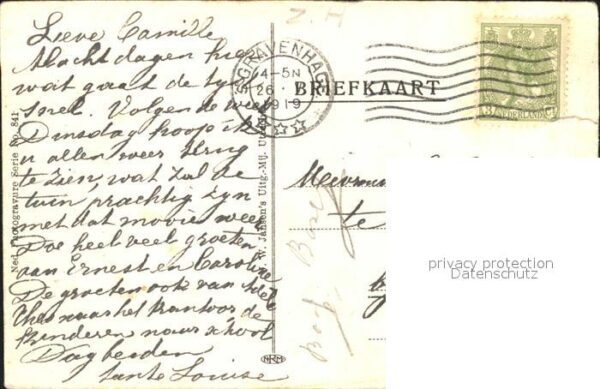 Lieve Camille
Al acht dagen hier
wat gaat de tijd
snel. Volgende week
Dinsdag hoop ik
u allen weer terug
te zien, wat zal de
tuin prachtig zyn
met dat mooie weer
Doe heel veel groeten
aan Ernest en Caroline
De groeten ook van
Theo naar het kantoor, de
kinderen naar school
Dag beiden
tante Louise
Ned. Photogravure Serie No. 841
Jansen's Uitg.-Mij.
'S GRAVENHAGE
4-5N
26
1919
BRIEFKAART
NEDERLAND
Mevrouw
te
privacy protection
Datenschutz